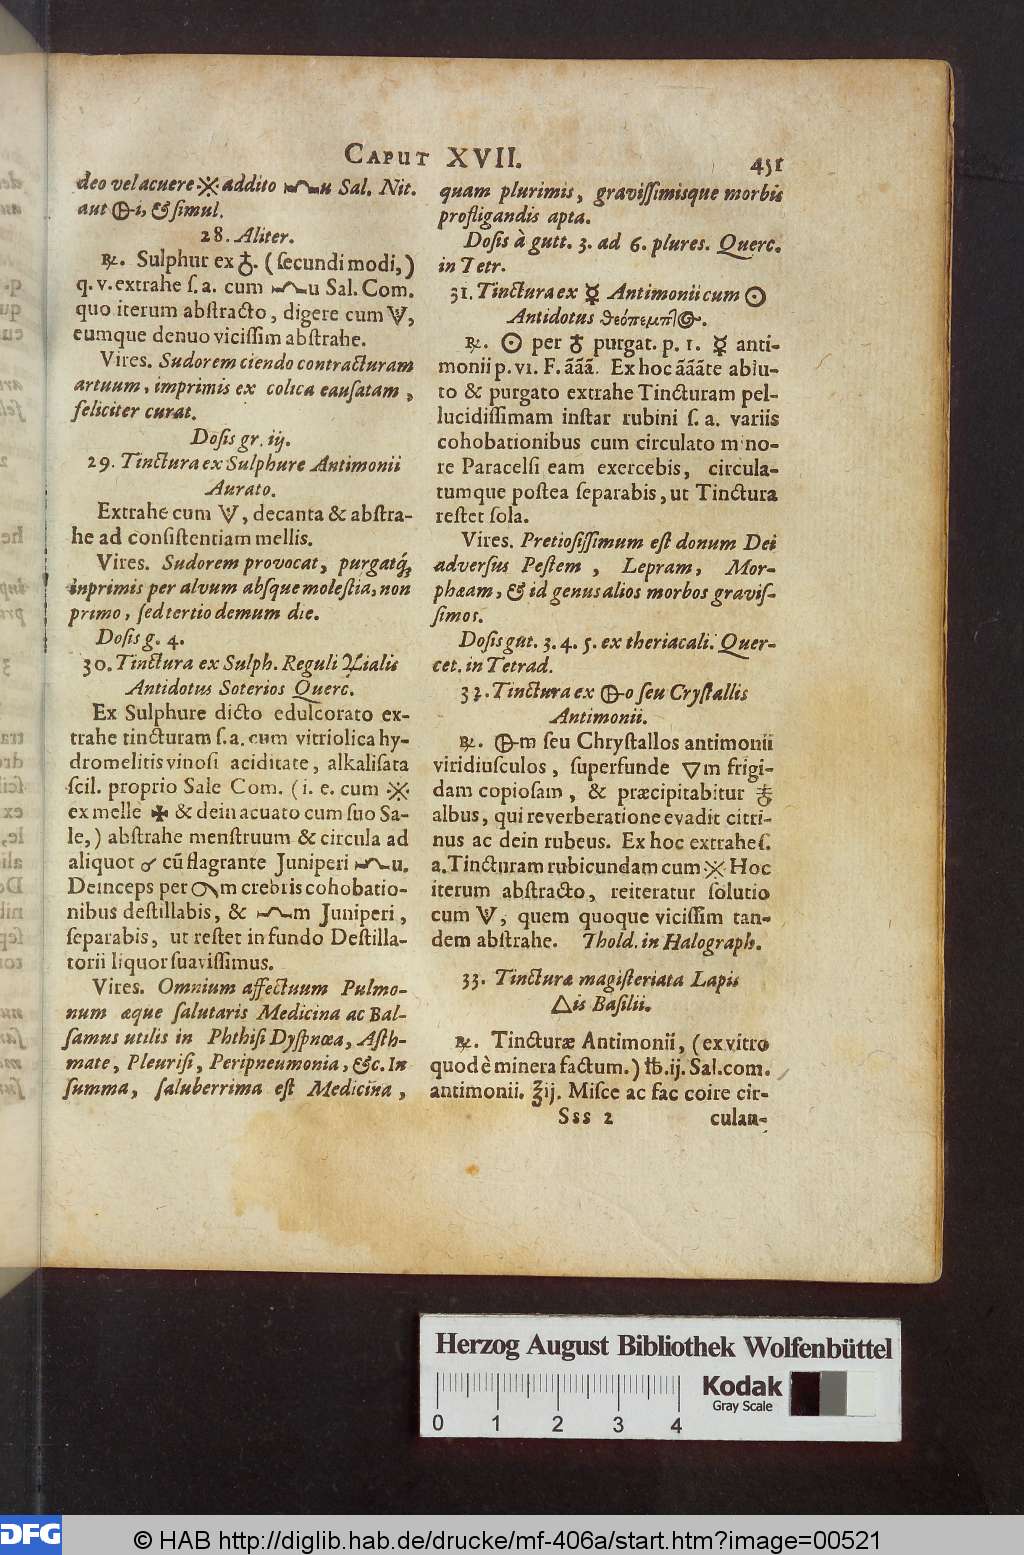 CAPUT XVII.
451
deo vel acuere ※ addito u Sal. Nit.
aut i, & simul.
28. Aliter.
℞. Sulphur ex ♁. (secundi modi,)
q. v. extrahe s. a. cum u Sal. Com.
quo iterum abstracto, digere cum,
eumque denuo vicissim abstrahe.
Vires. Sudorem ciendo contracturam
artuum, imprimis ex colica causatam,
feliciter curat.
Dosis gr. iij.
29. Tinctura ex Sulphure Antimonii
Aurato.
Extrahe cum, decanta & abstra-
he ad consistentiam mellis.
Vires. Sudorem provocat, purgatq́;
inprimis per alvum absque molestia, non
primo, sed tertio demum die.
Dosis g. 4.
30. Tinctura ex Sulph. Reguli ialis
Antidotus Soterios Querc.
Ex Sulphure dicto edulcorato ex-
trahe tincturam s. a. cum vitriolica hy-
dromelitis vinosi aciditate, alkalisata
scil. proprio Sale Com. (i. e. cum ※
ex melle ✠ & dein acuato cum suo Sa-
le,) abstrahe menstruum & circula ad
aliquot cũ flagrante Juniperi u.
Deinceps per m crebris cohobatio-
nibus destillabis, & m Juniperi,
separabis, ut restet in fundo Destilla-
torii liquor suavissimus.
Vires. Omnium affectuum Pulmo-
num æque salutaris Medicina ac Bal-
samus utilis in Phthisi Dyspnœa, Asth-
mate, Pleurisi, Peripneumonia, &c. In
summa, saluberrima est Medicina,
quam plurimis, gravissimisque morbis
profligandis apta.
Dosis à gutt. 3. ad 6. plures. Querc.
in Tetr.
31. Tinctura ex ☿ Antimonii cum ☉
Antidotus
℞. ☉ per ♁ purgat. p. 1. ☿ anti-
monii p. vi. F. ããã. Ex hoc ãããte ablu-
to & purgato extrahe Tincturam pel-
lucidissimam instar rubini s. a. variis
cohobationibus cum circulato mino-
re Paracelsi eam exercebis, circula-
tumque postea separabis, ut Tinctura
restet sola.
Vires. Pretiosissimum est donum Dei
adversus Pestem, Lepram, Mor-
phæam, & id genus alios morbos gravis-
simos.
Dosis gut. 3. 4. 5. ex theriacali. Quer-
cet. in Tetrad.
32. Tinctura ex o seu Crystallis
Antimonii.
℞. m seu Chrystallos antimonii
viridiusculos, superfunde ▽m frigi-
dam copiosam, & præcipitabitur
albus, qui reverberatione evadit citri-
nus ac dein rubeus. Ex hoc extrahe s.
a. Tincturam rubicundam cum ※ Hoc
iterum abstracto, reiteratur solutio
cum, quem quoque vicissim tan-
dem abstrahe. Thold. in Halograph.
33. Tincturæ magisteriata Lapis
△is Basilii.
℞. Tincturæ Antimonii, (ex vitro
quod è minera factum.) ℔. ij. Sal. com.
antimonii. ℥ij. Misce ac fac coire cir-
Sss 2 culan-
Herzog August Bibliothek Wolfenbüttel
0 1 2 3 4
Kodak
Gray Scale
DFG
© HAB http://diglib.hab.de/drucke/mf-406a/start.htm?image=00521